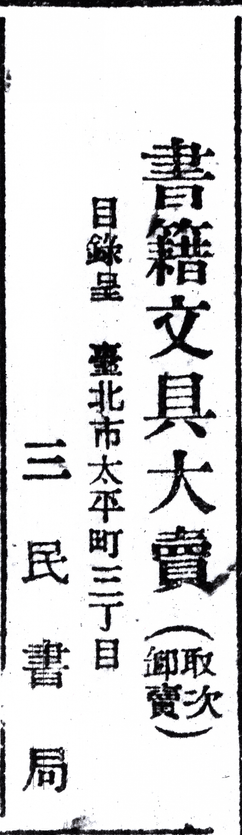 書籍文具大賣（取次卸賣）
目錄呈　臺北市太平町三丁目
三民書局